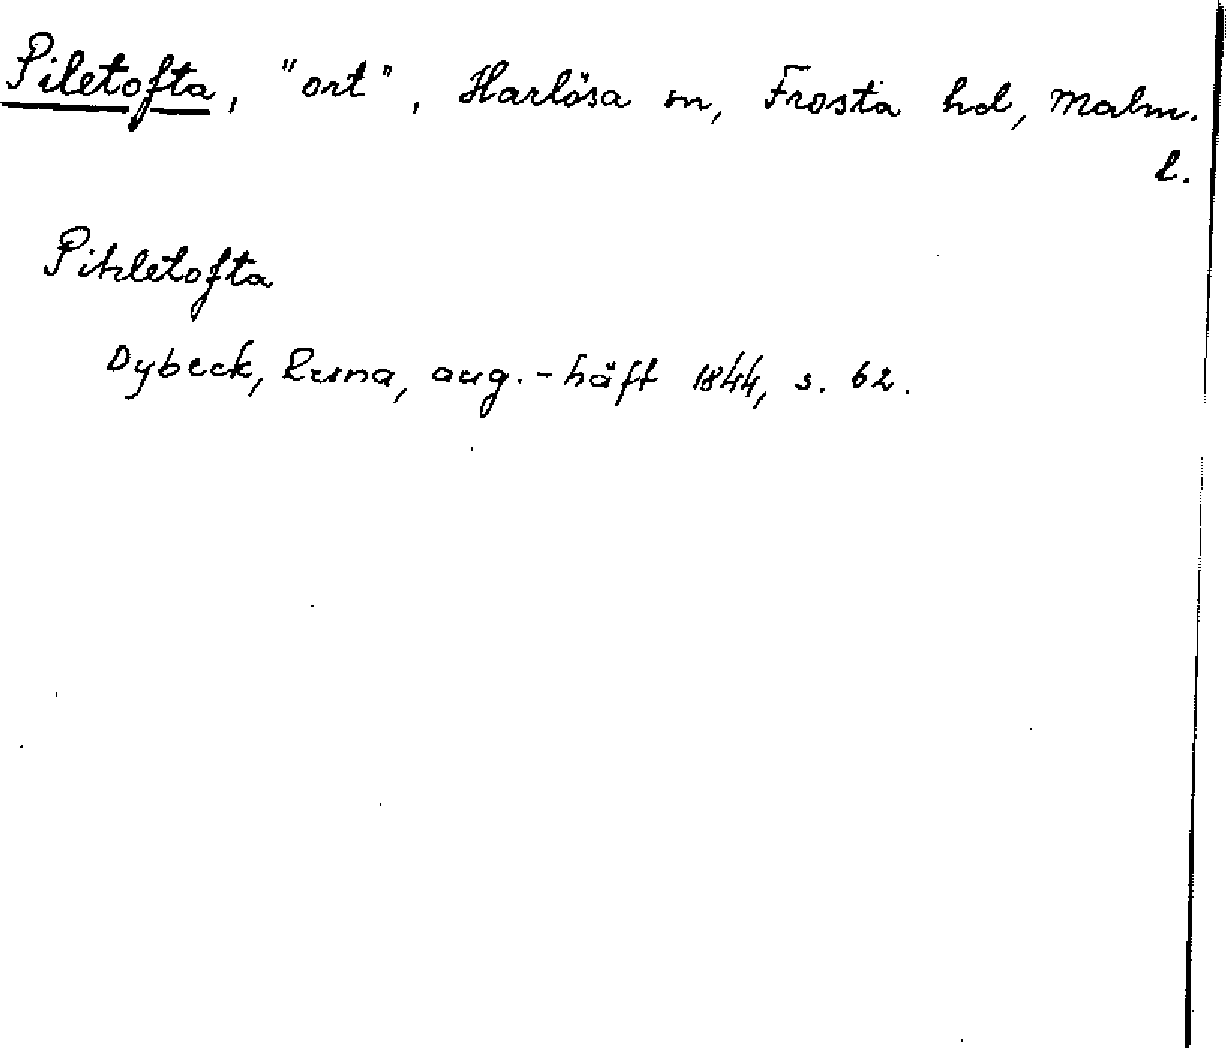 Piletofta, "ort", Harlösa sn, Frosta hd, Malm.
l.
Pihletofta
Dybeck, Runa, aug.-häft 1844, s. 62.